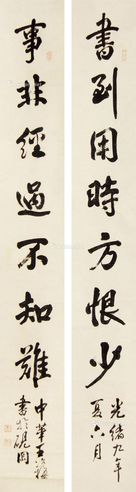 書到用時方恨少
光緒九年
夏六月
事非經過不知難
中華
書於硯園